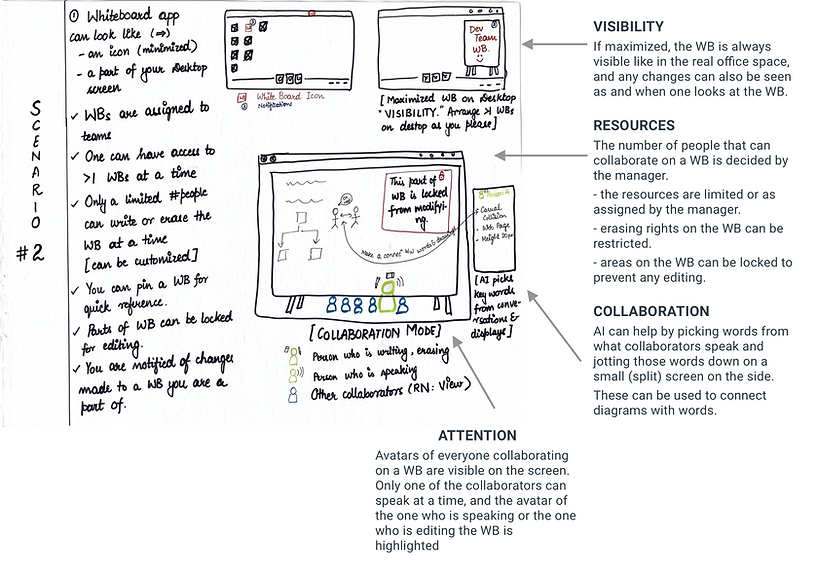 SCENARIO #2
① Whiteboard app
can look like (⇒)
- an icon (minimized)
- a part of your Desktop
screen
✓ WBs are assigned to
teams
✓ One can have access to
>1 WBs at a time
✓ Only a limited #people
can write or erase the
WB at a time
[can be customized]
✓ You can pin a WB for
quick reference.
✓ Parts of WB can be locked
for editing.
✓ You are notified of changes
made to a WB you are a
part of.
White Board Icon
Notifications
Dev
Team
WB.
[Maximized WB on Desktop
"VISIBILITY." Arrange >1 WBs
on destop as you please]
This part of
WB is locked
from modifyi-
ng.
Make a connec WW words & drawings
Person A
- Casual
Collision
- Web Page
- Height 20px
[AI picks
key words
from conve-
rsations &
displays]
[COLLABORATION MODE]
Person who is writing, erasing
Person who is speaking
Other collaborators (RN: View)
VISIBILITY
If maximized, the WB is always
visible like in the real office space,
and any changes can also be seen
as and when one looks at the WB.
RESOURCES
The number of people that can
collaborate on a WB is decided by
the manager.
- the resources are limited or as
assigned by the manager.
- erasing rights on the WB can be
restricted.
- areas on the WB can be locked to
prevent any editing.
COLLABORATION
AI can help by picking words from
what collaborators speak and
jotting those words down on a
small (split) screen on the side.
These can be used to connect
diagrams with words.
ATTENTION
Avatars of everyone collaborating
on a WB are visible on the screen.
Only one of the collaborators can
speak at a time, and the avatar of
the one who is speaking or the one
who is editing the WB is
highlighted